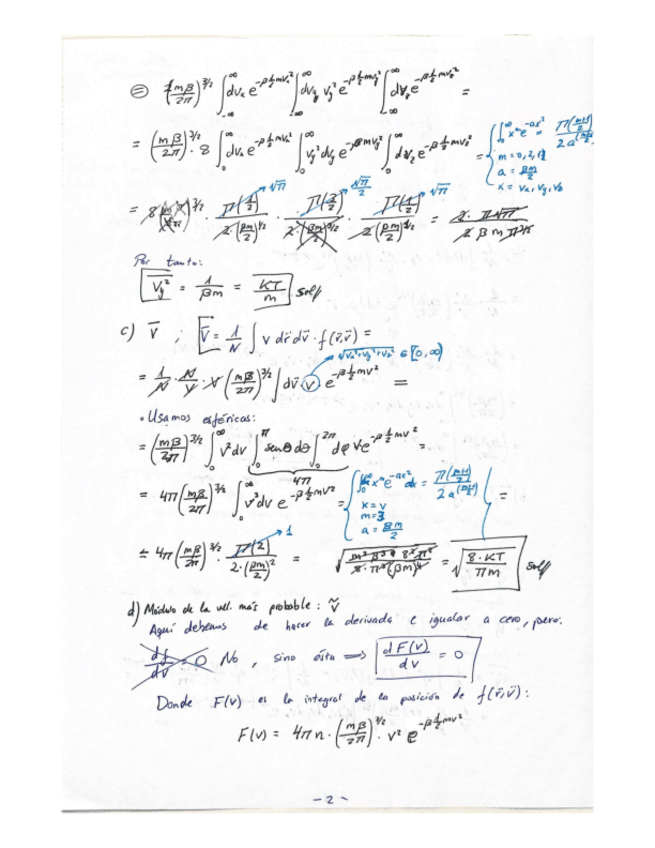 = (mβ/2π)^{3/2} ∫_{-∞}^{∞} dv_x e^{-β½mv_x²} ∫_{-∞}^{∞} dv_y v_y² e^{-β½mv_y²} ∫_{-∞}^{∞} dv_z e^{-β½mv_z²} =
= (mβ/2π)^{3/2} · 8 ∫_0^∞ dv_x e^{-β½mv_x²} ∫_0^∞ v_y² dv_y e^{-β½mv_y²} ∫_0^∞ dv_z e^{-β½mv_z²} =
∫_0^∞ x^m e^{-ax²} = Γ((m+1)/2) / 2a^{(m+1)/2}
a = βm/2
x = v_x, v_y, v_z
= 8 (mβ/2π)^{3/2} · Γ(1/2)/2(βm/2)^{1/2} · Γ(3/2)/2(βm/2)^{3/2} · Γ(1/2)/2(βm/2)^{1/2} =
√π √π/2 √π
Por tanto:
v_y² = 1/βm = KT/m
c) v̄ ; v̄ = 1/N ∫ v dr̄ dv̄ · f(r̄,v̄) =
√(v_x²+v_y²+v_z²) ∈ [0,∞)
= 1/N · N/V · V (mβ/2π)^{3/2} ∫ dv̄ v e^{-β½mv²} =
• Usamos esféricas:
= (mβ/2π)^{3/2} ∫_0^∞ v² dv ∫_0^π senθ dθ ∫_0^{2π} dφ v e^{-β½mv²} =
4π
= 4π (mβ/2π)^{3/2} ∫_0^∞ v³ dv e^{-β½mv²} =
∫_0^∞ x^m e^{-ax²} dx = Γ((m+1)/2) / 2a^{(m+1)/2} =
x = v
m = 3
a = βm/2
= 4π (mβ/2π)^{3/2} · Γ(2)/2·(βm/2)² = = √(8·KT/πm)
1
d) Módulo de la vel. más probable : ṽ
Aquí debemos de hacer la derivada e igualar a cero, pero:
df/dv = 0 No, sino ésta ⟹ dF(v)/dv = 0
Donde F(v) es la integral de la posición de f(r̄,v̄):
F(v) = 4π n · (mβ/2π)^{3/2} · v² e^{-β½mv²}
- 2 -